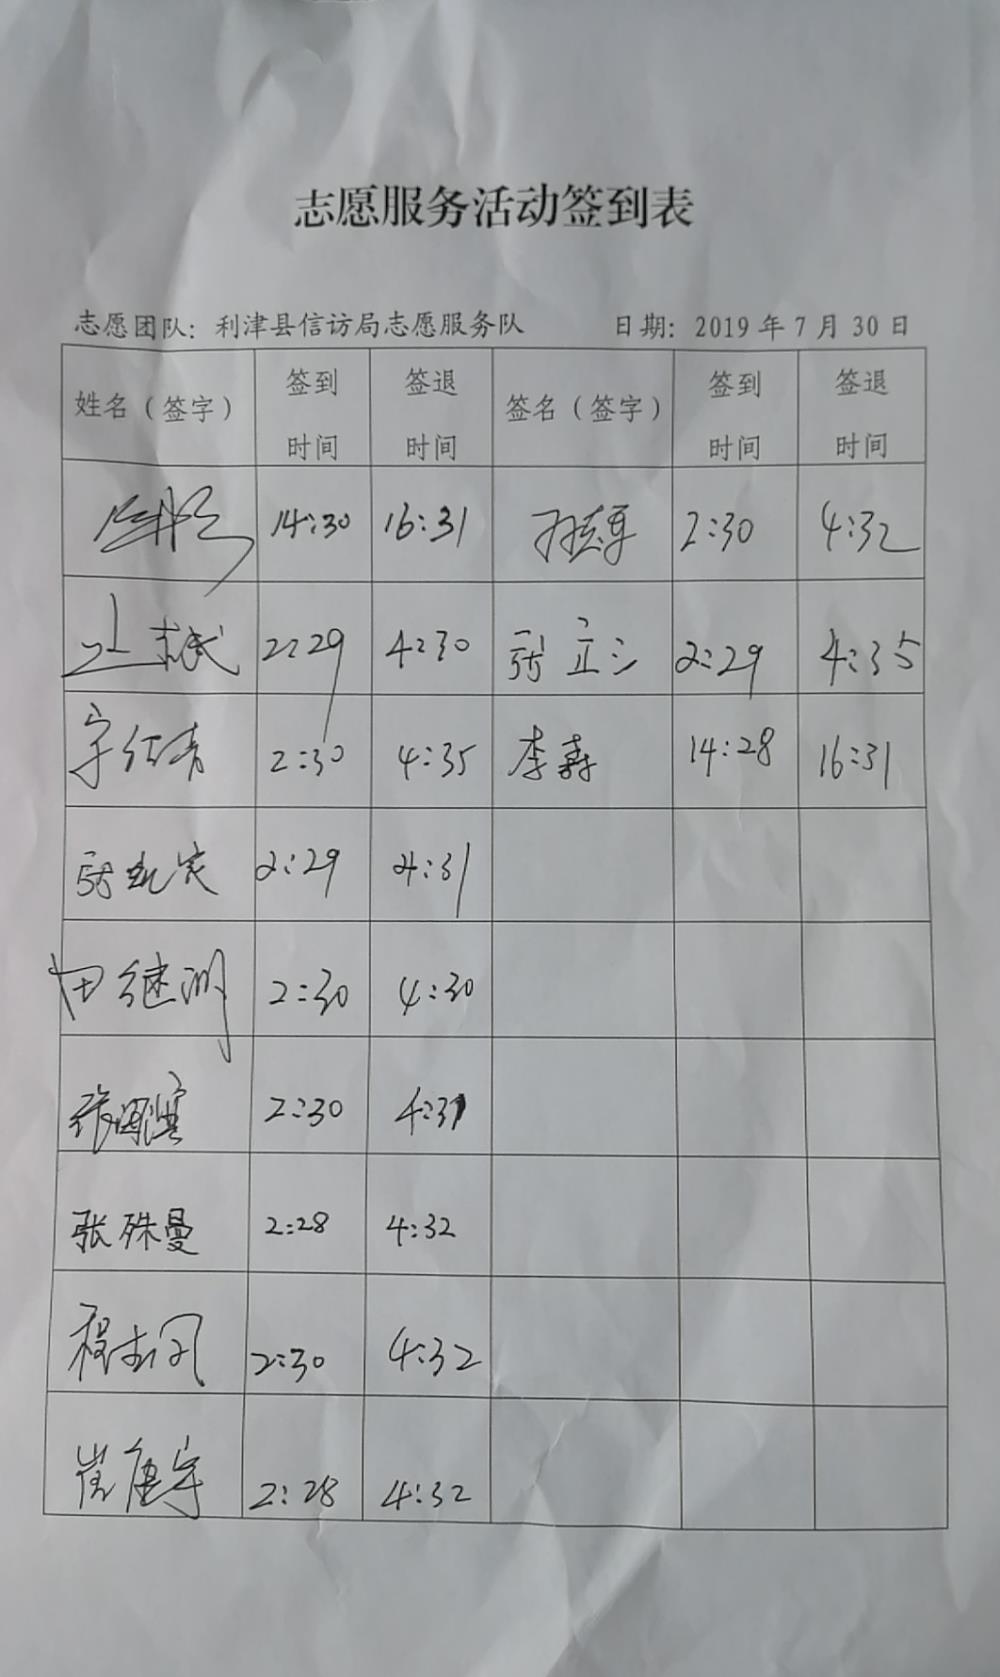 志愿服务活动签到表
志愿团队：利津县信访局志愿服务队 日期：2019年7月30日
姓名（签字） 签到时间 签退时间 签名（签字） 签到时间 签退时间
14:30 16:31 2:30 4:32
2:29 4:30 张立 2:29 4:35
2:30 4:35 李 14:28 16:31
张 2:29 4:31
田继洲 2:30 4:30
张 2:30 4:31
张殊曼 2:28 4:32
程 2:30 4:32
崔 宇 2:28 4:32